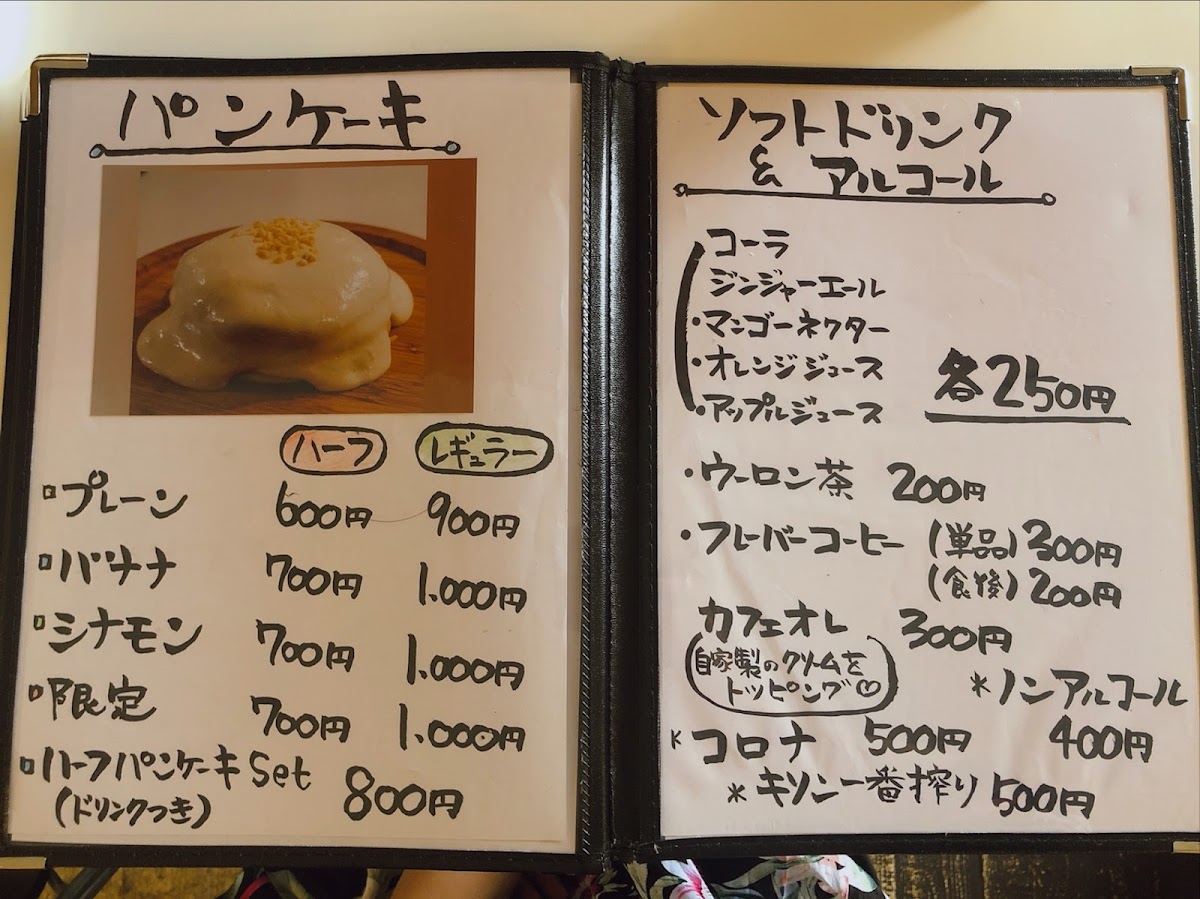 パンケーキ
ハーフ レギュラー
プレーン 600円 900円
バナナ 700円 1.000円
シナモン 700円 1.000円
限定 700円 1.000円
ハーフパンケーキ Set 800円
(ドリンクつき)
ソフトドリンク
& アルコール
コーラ
ジンジャーエール
・マンゴーネクター
・オレンジジュース
・アップルジュース
各250円
・ウーロン茶 200円
・フレーバーコーヒー (単品)300円
(食後)200円
カフェオレ 300円
自家製のクリームを
トッピング♡
*ノンアルコール
400円
コロナ 500円
*キリン一番搾り 500円